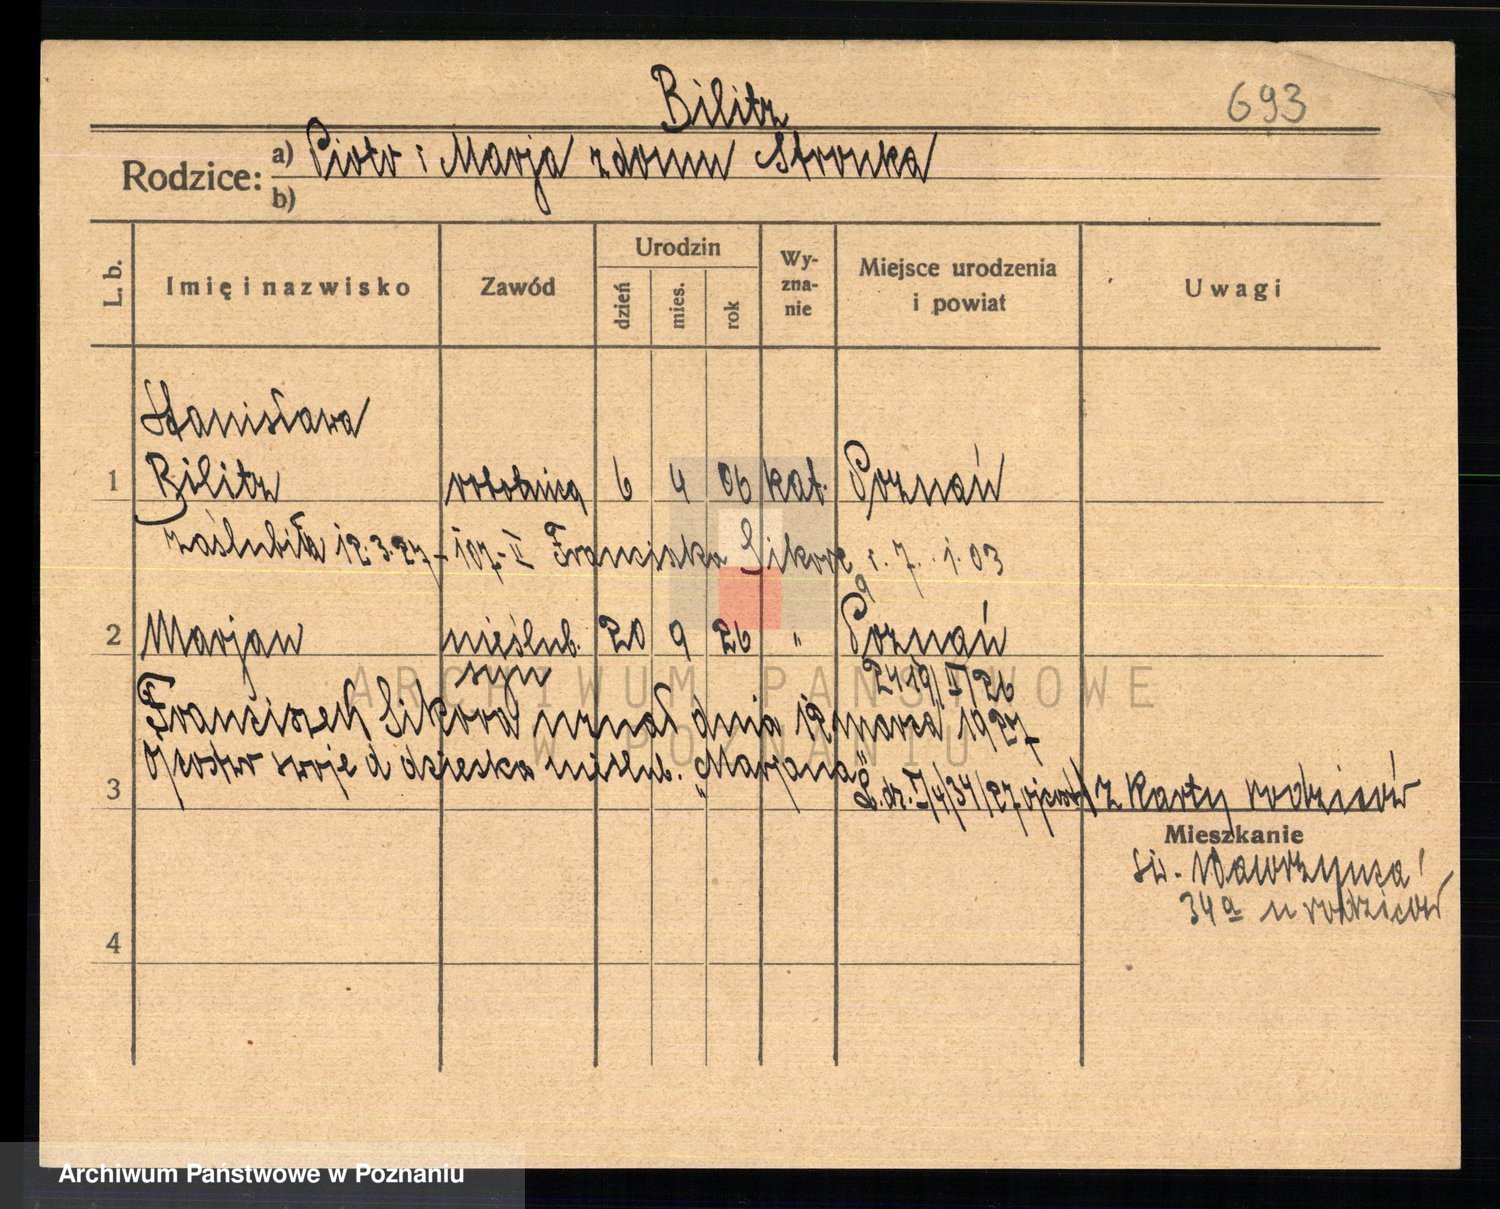 Bilitz
693
Rodzice:
a) Piotr i Marja z domu Stronka
b)
L. b.
Imię i nazwisko
Zawód
Urodzin
dzień
mies.
rok
Wy-
zna-
nie
Miejsce urodzenia
i powiat
Uwagi
Stanisława
1 Bilitz robotnica 6 4 06 kat. Poznań
zaślubiła 12.3.27 - 107-II Franciszka Sikorę r. 7. 1. 03
2 Marjan nieślub. 20 9 26 " Poznań
syn 2419/I/26
Franciszek Sikora uznał dnia 12 marca 1927
ojcostwo swoje d dziecka nieślub. „Marjana"
3 L.dz. I/4/34/27 z karty rodziców
Mieszkanie
św. Wawrzyńca
34a u rodziców
4
ARCHIWUM PAŃSTWOWE
W POZNANIU
Archiwum Państwowe w Poznaniu